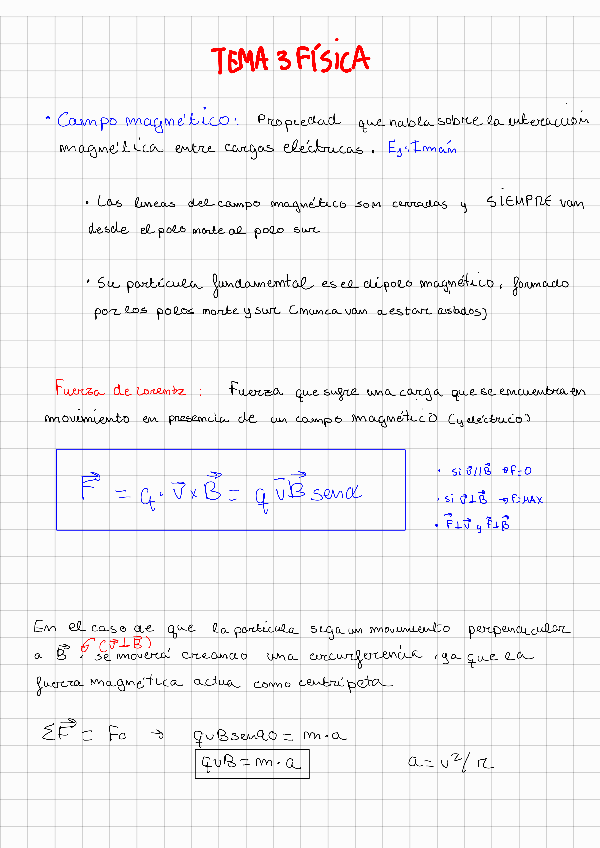 TEMA 3 FÍSICA
• Campo magnético: Propiedad que habla sobre la interacción
magnética entre cargas eléctricas. Ej: Imán
• Las lineas del campo magnético son cerradas y SIEMPRE van
desde el polo norte al polo sur
• Su partícula fundamental es el dipolo magnético, formado
por los polos norte y sur (nunca van a estar aislados)
Fuerza de Lorentz: Fuerza que sufre una carga que se encuentra en
movimiento en presencia de un campo magnético (y eléctrico)
F⃗ = q · v⃗ x B⃗ = q v⃗ B⃗ sen α
• si v⃗ // B⃗ → F=0
• si v⃗ ⊥ B⃗ → F=MAX
• F⃗ ⊥ v⃗ y F⃗ ⊥ B⃗
En el caso de que la partícula siga un movimiento perpendicular
(v⃗ ⊥ B⃗)
a B⃗, se moverá creando una circunferencia, ya que la
fuerza magnética actua como centrípeta.
ΣF⃗ = Fc → qvBsen90 = m·a
qvB = m·a a = v²/r